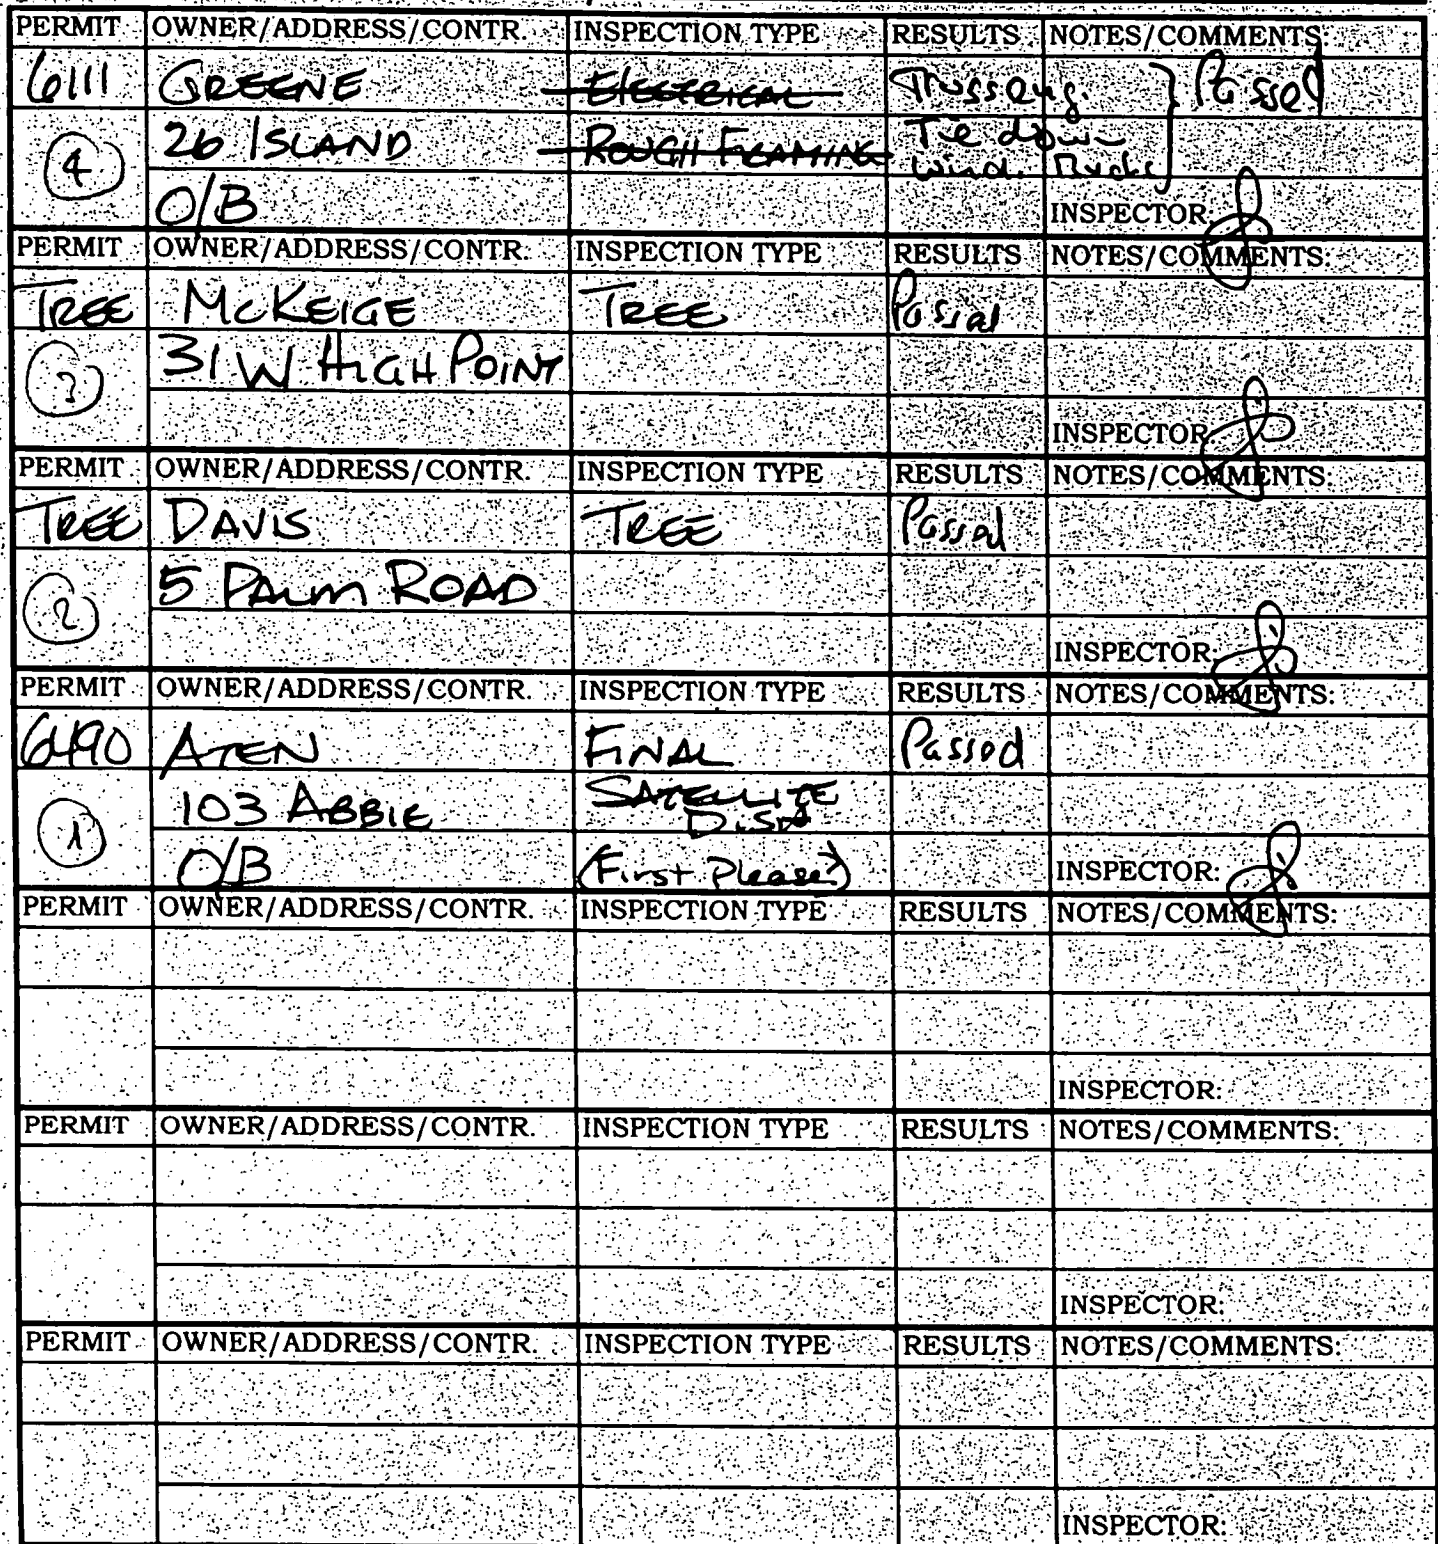 PERMIT OWNER/ADDRESS/CONTR. INSPECTION TYPE RESULTS NOTES/COMMENTS:
6111 GREENE ELECTRICAL Truss eng. } Passed
4 26 ISLAND ROUGH FRAMING Tie down
O/B Wind. Bucks INSPECTOR:
PERMIT OWNER/ADDRESS/CONTR. INSPECTION TYPE RESULTS NOTES/COMMENTS:
TREE MCKEIGE TREE Passed
3 31 W HIGH POINT
INSPECTOR:
PERMIT OWNER/ADDRESS/CONTR. INSPECTION TYPE RESULTS NOTES/COMMENTS:
TREE DAVIS TREE Passed
2 5 PALM ROAD
INSPECTOR:
PERMIT OWNER/ADDRESS/CONTR. INSPECTION TYPE RESULTS NOTES/COMMENTS:
6490 ATEN FINAL Passed
1 103 ABBIE SATELLITE
DISH
O/B (First Please?) INSPECTOR:
PERMIT OWNER/ADDRESS/CONTR. INSPECTION TYPE RESULTS NOTES/COMMENTS:
INSPECTOR:
PERMIT OWNER/ADDRESS/CONTR. INSPECTION TYPE RESULTS NOTES/COMMENTS:
INSPECTOR:
PERMIT OWNER/ADDRESS/CONTR. INSPECTION TYPE RESULTS NOTES/COMMENTS:
INSPECTOR: